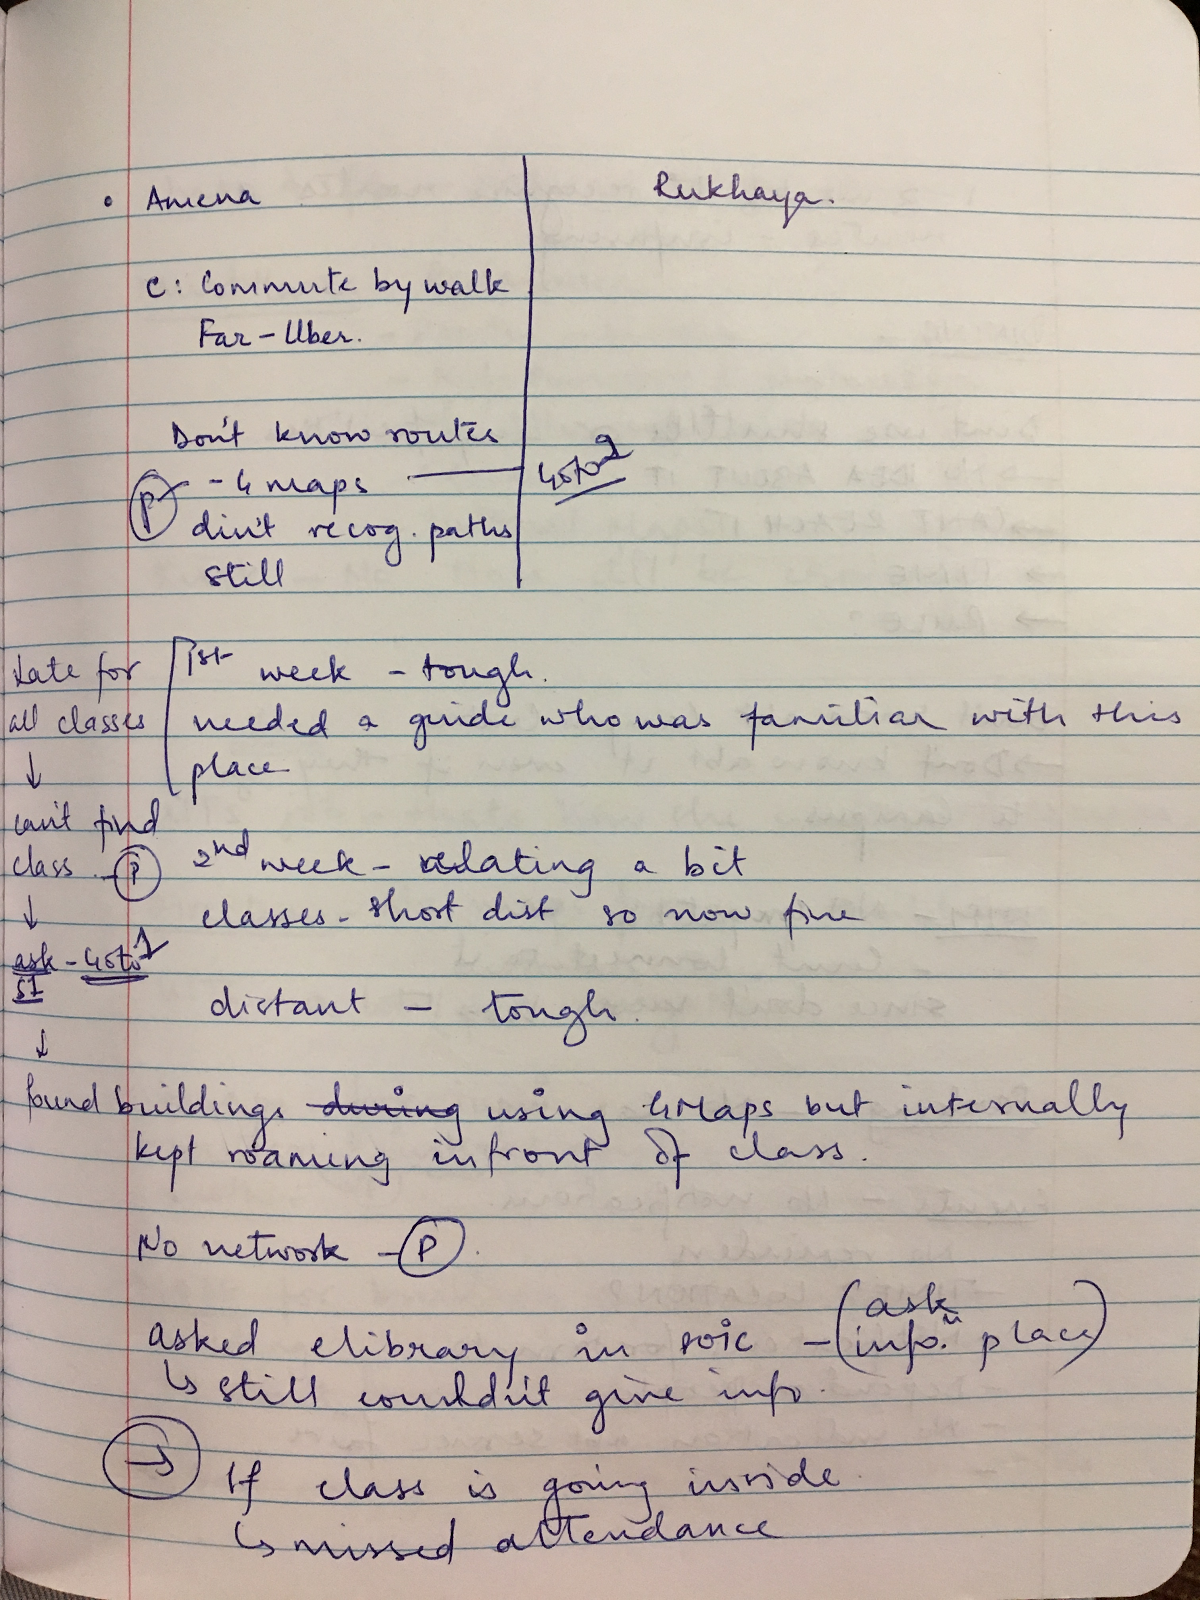 • Amena
Rukhaya.
C: Commute by walk
Far - Uber.
Don't know routes
P - G maps — Goto 2
din't recog. paths
still
Late for
all classes
↓
can't find
class - P
↓
ask - Goto 1
↓
1st week - tough.
needed a guide who was familiar with this
place
2nd week - relating a bit
classes - short dist so now fine
distant - tough.
found buildings during using GMaps but internally
kept roaming infront of class.
No network - P.
asked elibrary in soic - (ask
info.n place)
↳ still couldn't give info.
→ If class is going inside.
↳ missed attendance